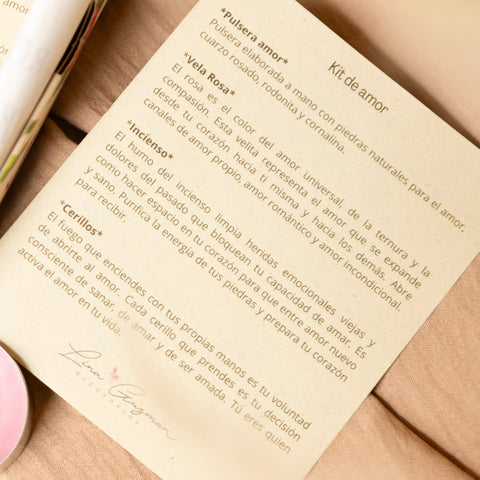 Kit de amor
*Pulsera amor*
Pulsera elaborada a mano con piedras naturales para el amor,
cuarzo rosado, rodonita y cornalina.
*Vela Rosa*
El rosa es el color del amor universal, de la ternura y la
compasión. Esta velita representa el amor que se expande
desde tu corazón hacia ti misma y hacia los demás. Abre
canales de amor propio, amor romántico y amor incondicional.
*Incienso*
El humo del incienso limpia heridas emocionales viejas y
dolores del pasado que bloquean tu capacidad de amar. Es
como hacer espacio en tu corazón para que entre amor nuevo
y sano. Purifica la energía de tus piedras y prepara tu corazón
para recibir.
*Cerillos*
El fuego que enciendes con tus propias manos es tu voluntad
de abrirte al amor. Cada cerillo que prendes es tu decisión
consciente de sanar, de amar y de ser amada. Tú eres quien
activa el amor en tu vida
Lina Guzmán
ACCESORIOS
de amor